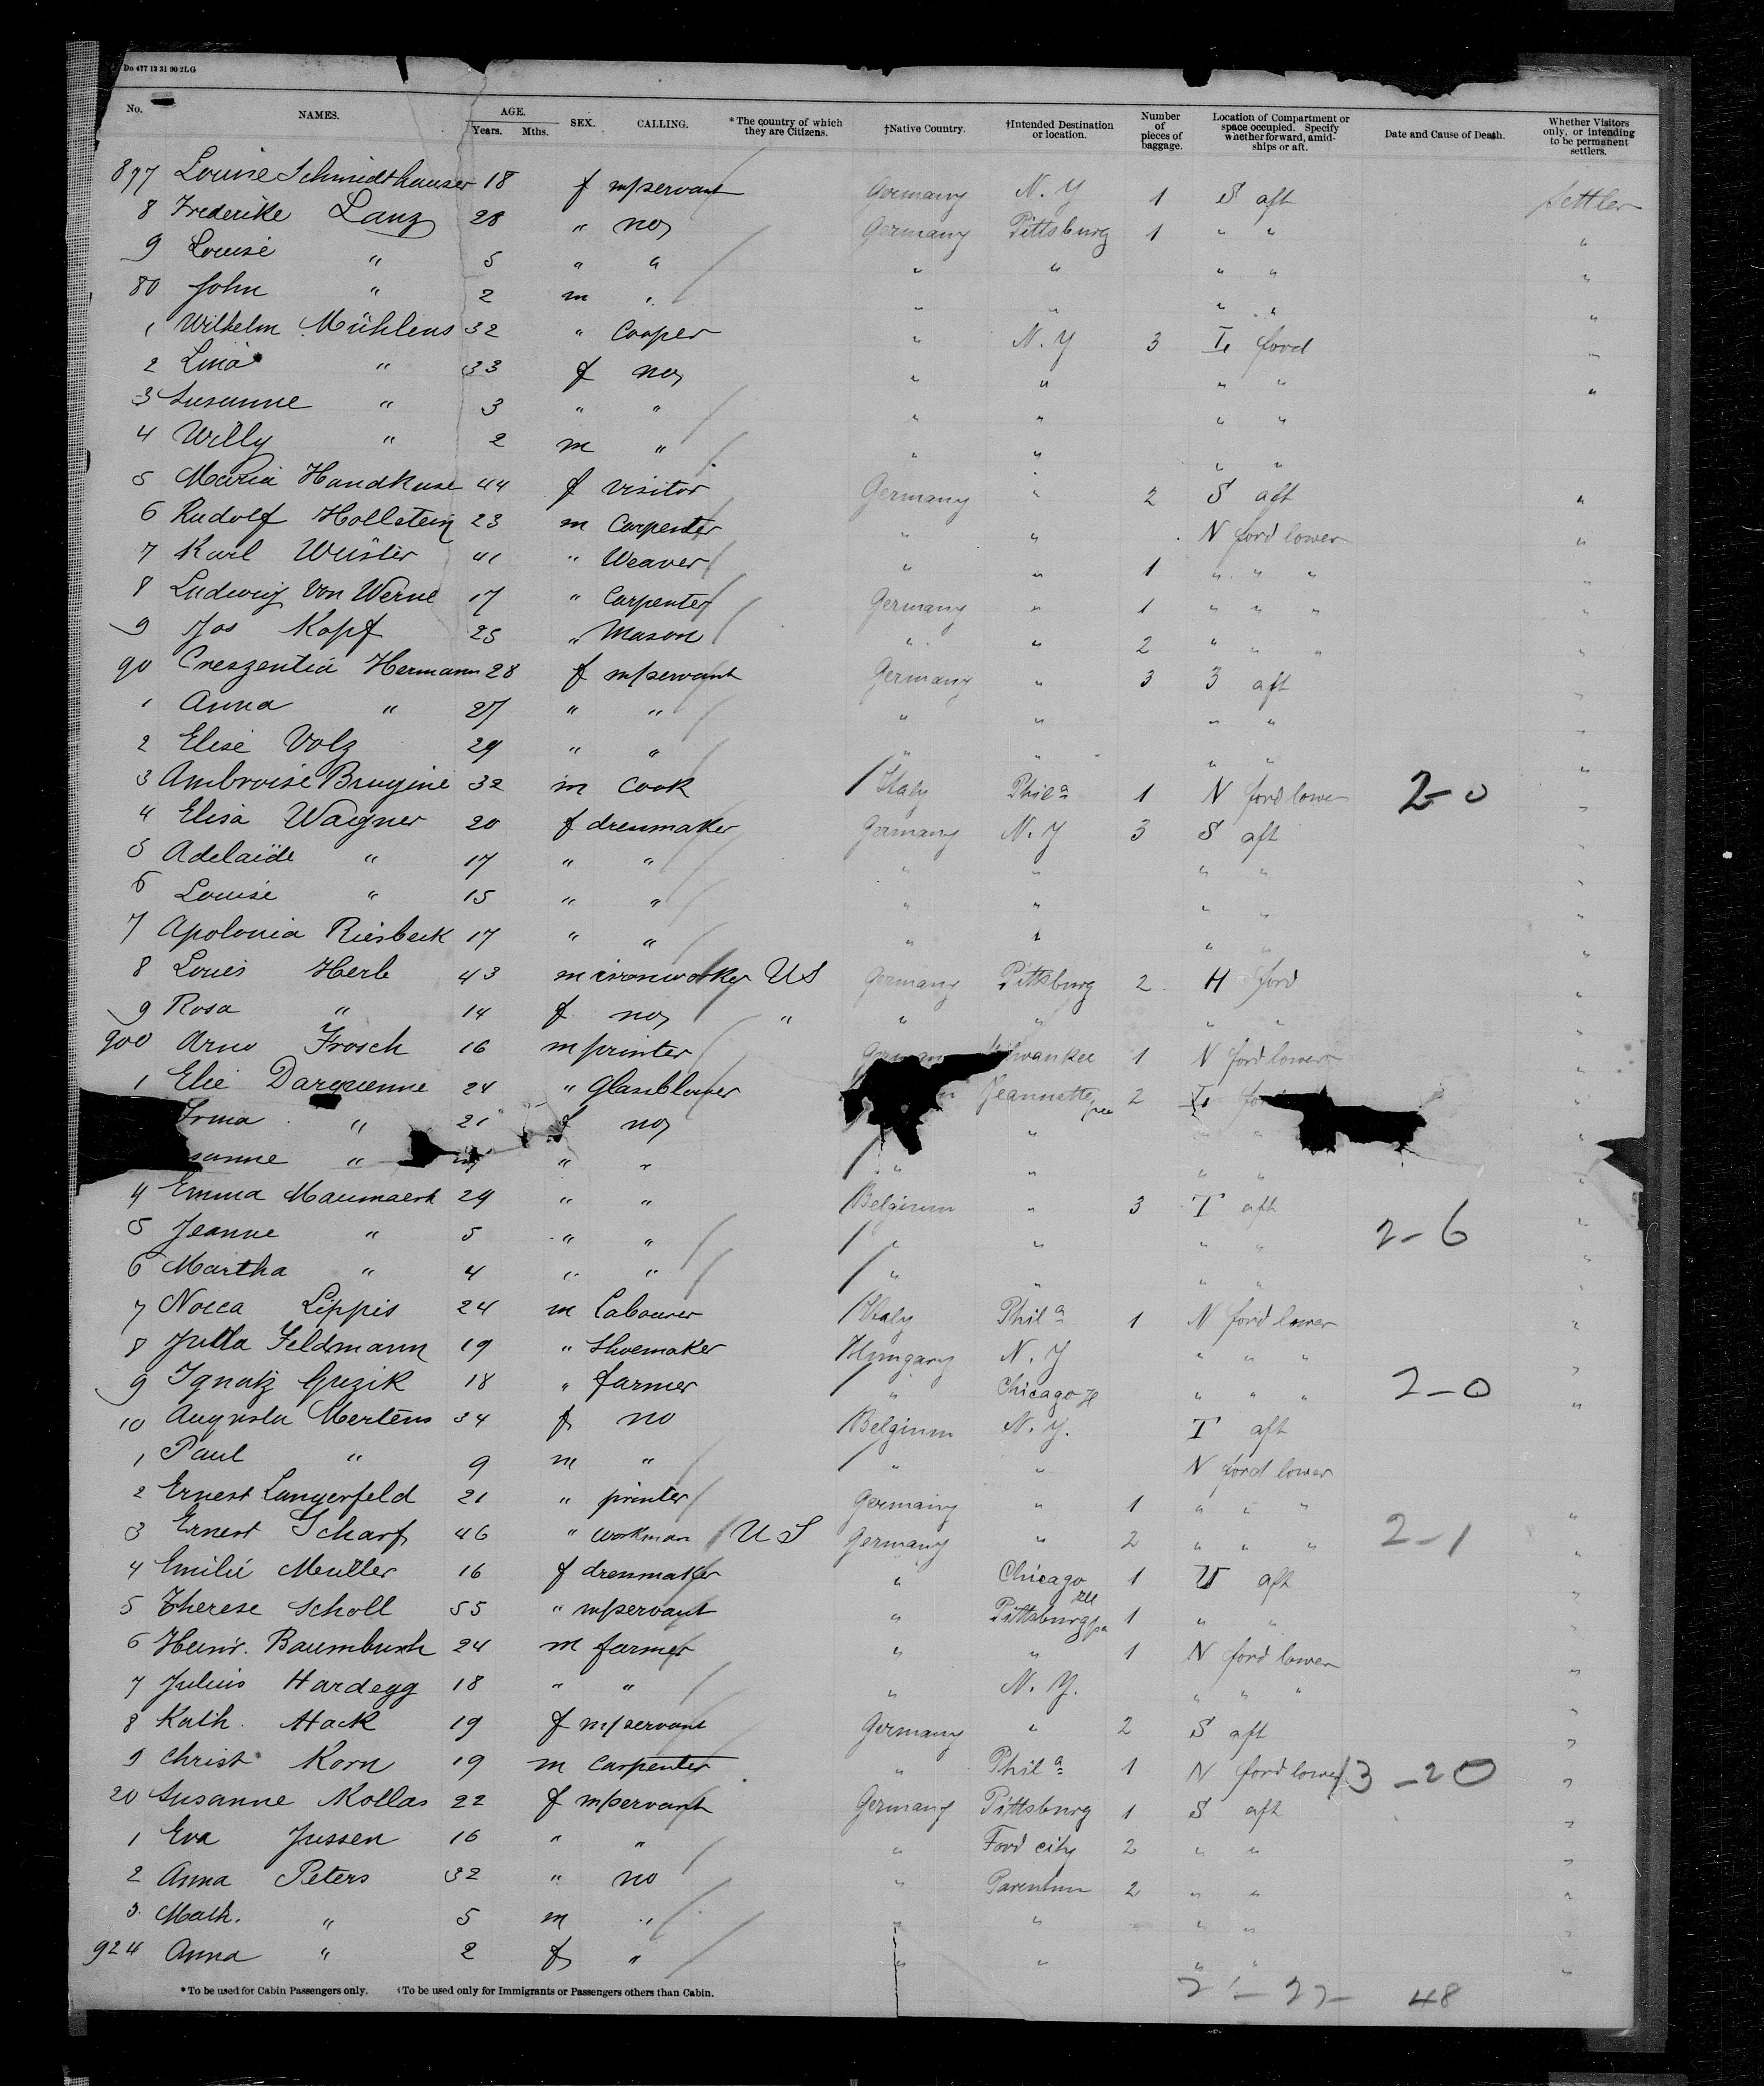 Do 477 12 31 90 2LG
No. NAMES. AGE. Years. Mths. SEX. CALLING. *The country of which they are Citizens. †Native Country. †Intended Destination or location. Number of pieces of baggage. Location of Compartment or space occupied. Specify whether forward, amidships or aft. Date and Cause of Death. Whether Visitors only, or intending to be permanent settlers.
897 Louise Schmidthauser 18 f m/servant Germany N.Y 1 S aft Settler
8 Frederike Lanz 28 " no Germany Pittsburg 1 " " "
9 Louise " 5 " " " " " " "
80 John " 2 m " " " " " "
1 Wilhelm Mühlens 32 " Cooper " N.Y 3 I ford "
2 Lina " 33 f no " " " " "
3 Susanne " 3 " " " " " "
4 Willy " 2 m " " " " "
5 Maria Handkuse 44 f visitor Germany " 2 S aft "
6 Rudolf Hollstein 23 m Carpenter " " N ford lower "
7 Karl Wüster 41 " Weaver " " 1 " " " "
8 Ludwig von Werne 17 " Carpenter Germany " 1 " " " "
9 Jos Kopf 25 " Mason " " 2 " " " "
90 Creszentia Hermann 28 f m/servant Germany " 3 3 aft "
1 Anna " 27 " " " " " " "
2 Elise Volz 29 " " " " " " "
3 Ambroise Brugine 32 m Cook Italy Phila 1 N ford lowe 2-0 "
4 Elisa Wagner 20 f dressmaker Germany N.Y 3 S aft "
5 Adelaïde " 17 " " " " " " "
6 Louise " 15 " " " " " " "
7 Apolonia Riesbeck 17 " " " " " " "
8 Louis Herb 43 m ironworker US Germany Pittsburg 2 H ford "
9 Rosa " 14 f no " " " " " "
900 Arno Frosch 16 m printer German waukee 1 N ford lower "
1 Elie Darquenne 24 " Glassblower Jeannette pa 2 I "
Irma " 21 f no " " " "
sanne " " " " " " " "
4 Emma Maumaerk 29 " " Belgium " 3 T aft "
5 Jeanne " 5 " " " " " " 2-6 "
6 Martha " 4 " " " " " " "
7 Nocca Lippis 24 m Labourer Italy Phila 1 N ford lower "
8 Jutta Feldmann 19 " Shoemaker Hungary N.Y " " " "
9 Ignatz Grezik 18 " farmer " Chicago " " " 2-0 "
10 Augusta Mertens 34 f no Belgium N.Y. T aft
1 Paul " 9 m " " " N ford lower
2 Ernest Langerfeld 21 " printer Germany " 1 " " " "
3 Ernest Scharf 46 " workman US Germany " 2 " " " 2-1 "
4 Emilie Meuller 16 f dressmaker " Chicago Ill 1 U aft "
5 Therese Scholl 55 " m/servant " Pittsburg pa 1 " " "
6 Heinr. Baumbush 24 m farmer " " 1 N ford lower "
7 Julius Hardegg 18 " " " N.Y. " " " "
8 Kath. Hack 19 f m/servant Germany " 2 S aft "
9 Christ Korn 19 m Carpenter " Phila 1 N ford lower 13-20 "
20 Susanne Kollas 22 f m/servant Germany Pittsburg 1 S aft "
1 Eva Jussen 16 " " " Ford city 2 " " "
2 Anna Peters 32 " no " 2 " " "
3 Math. " 5 m " " " " " "
924 Anna " 2 f " " " " " "
*To be used for Cabin Passengers only. †To be used only for Immigrants or Passengers others than Cabin.
48